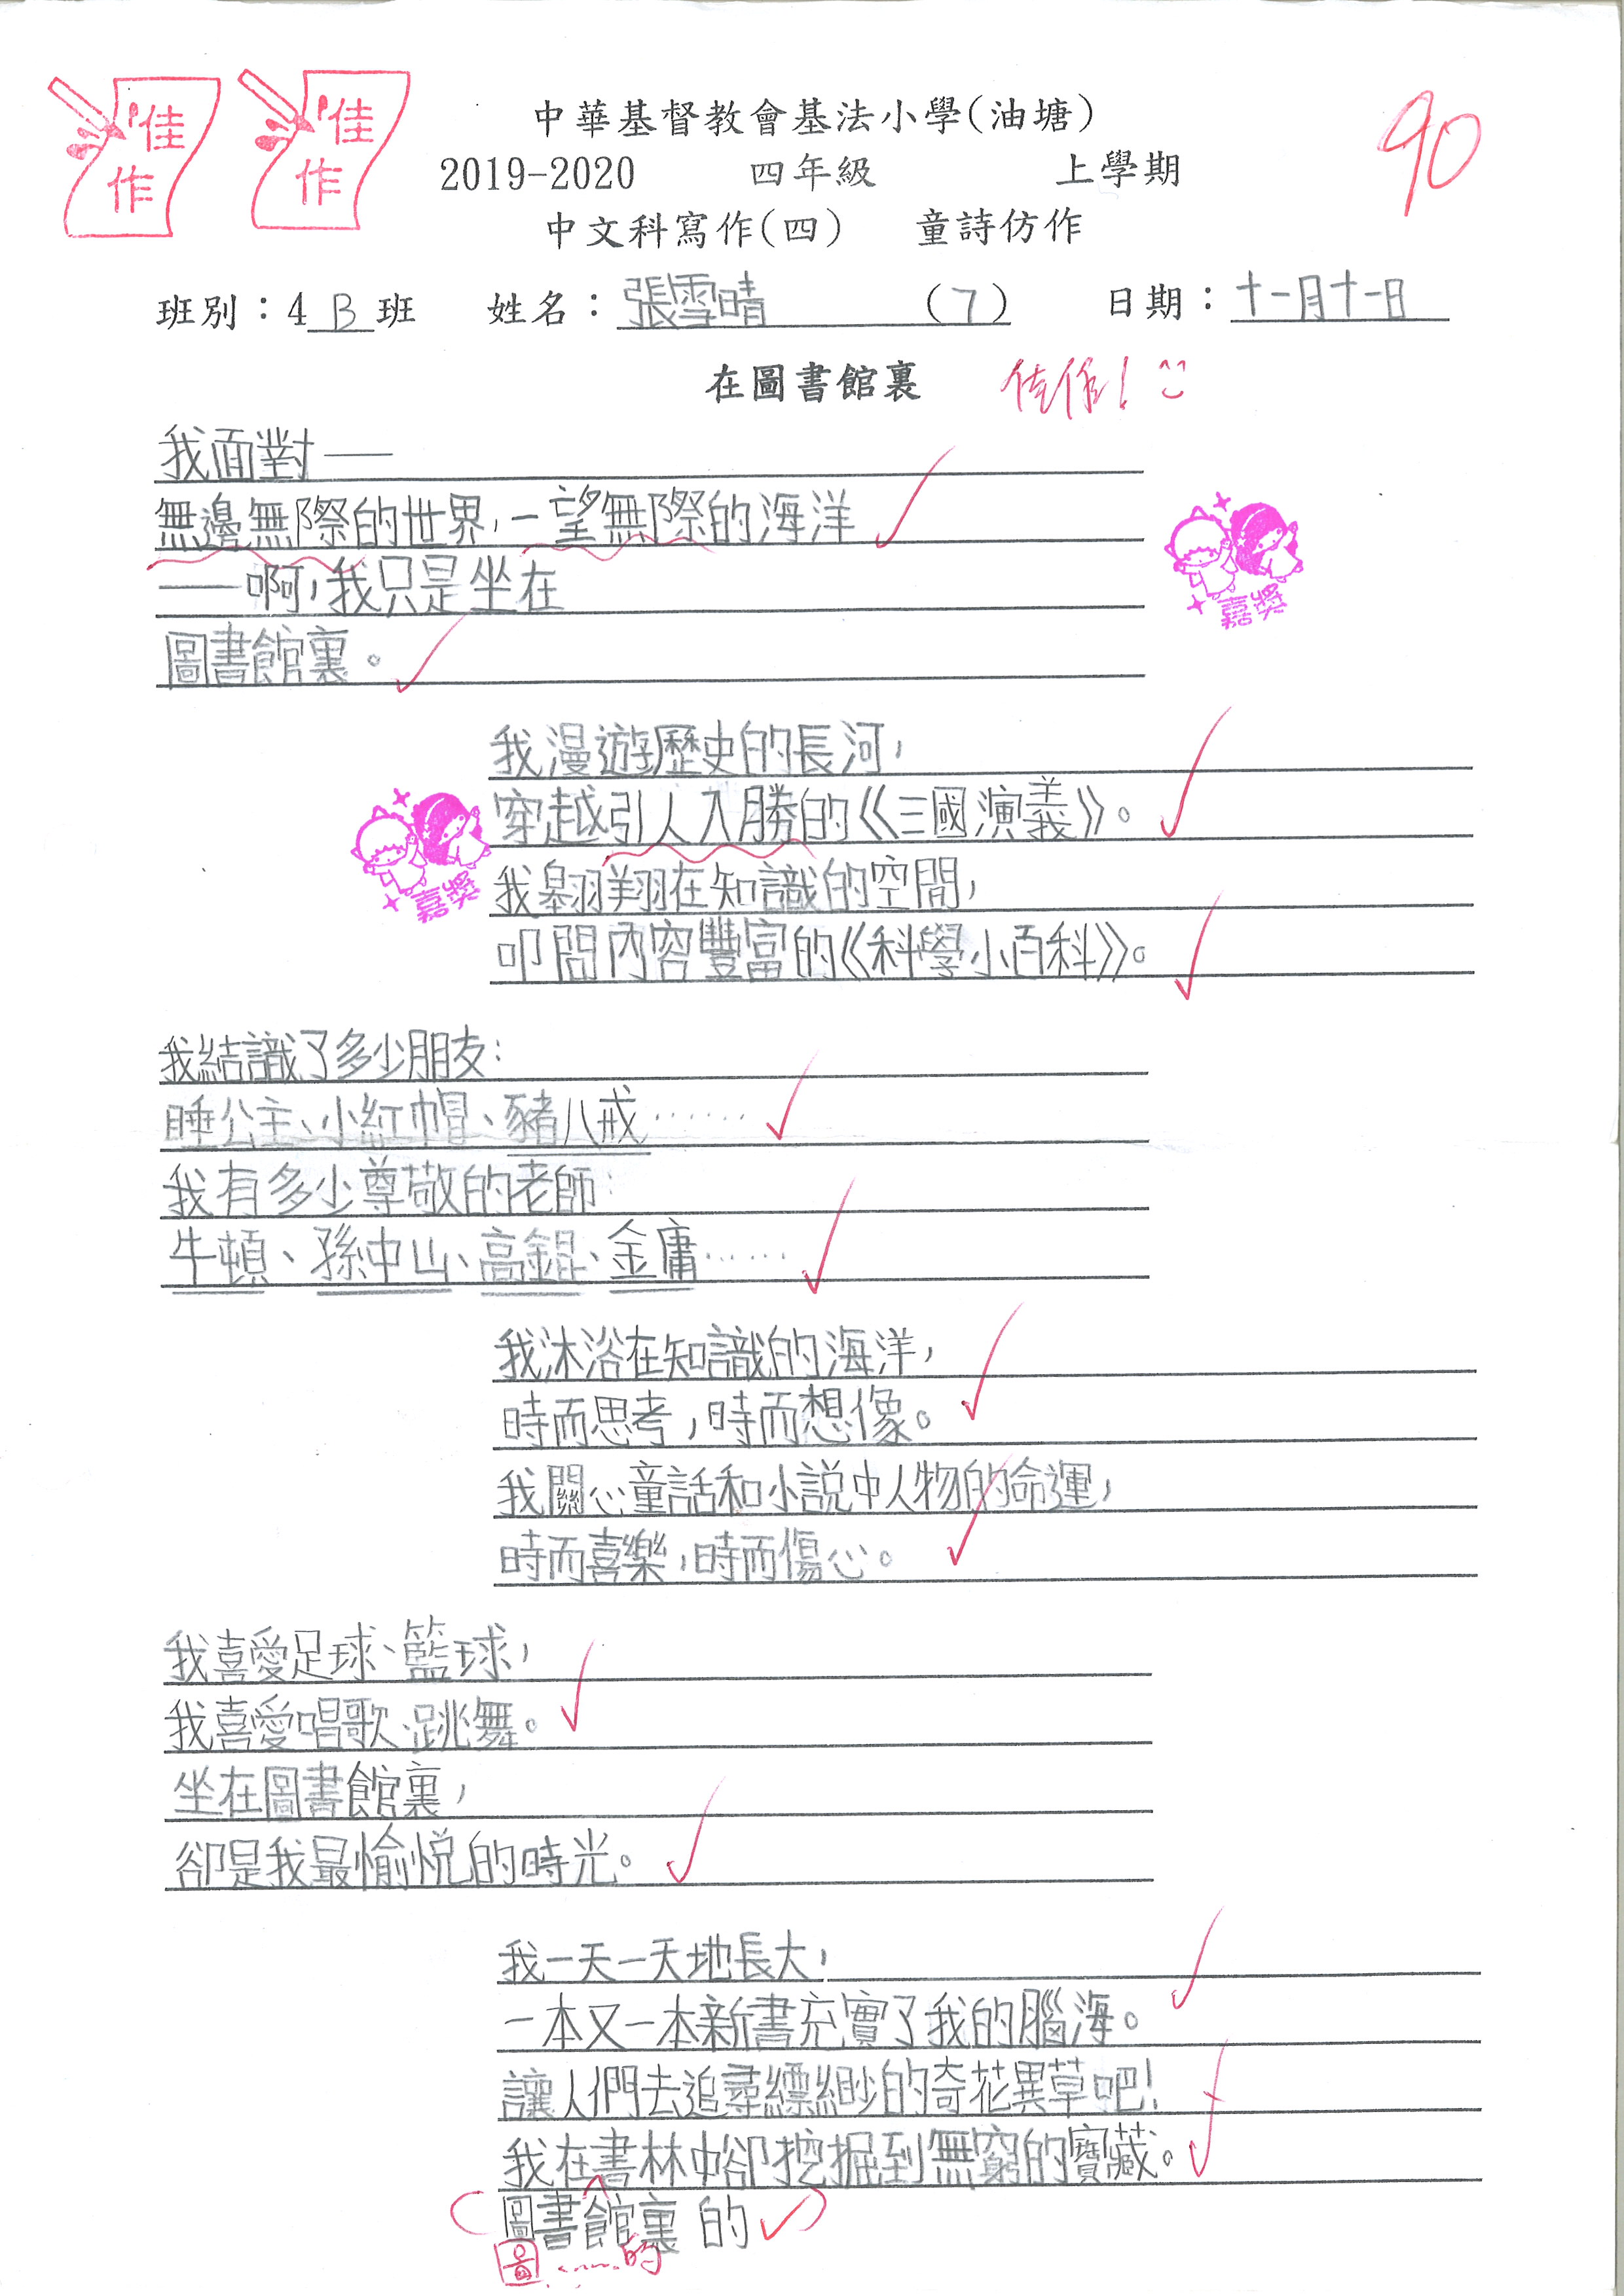 佳作
佳作
中華基督教會基法小學(油塘)
90
2019-2020 四年級 上學期
中文科寫作(四) 童詩仿作
班別：4 B 班 姓名：張雪晴 (7) 日期：十一月十一日
在圖書館裏 佳作！
我面對——
無邊無際的世界，一望無際的海洋
——啊，我只是坐在
嘉獎
圖書館裏。
我漫遊歷史的長河，
穿越引人入勝的《三國演義》。
我翱翔在知識的空間，
嘉獎
叩問內容豐富的《科學小百科》。
我結識了多少朋友：
睡公主、小紅帽、豬八戒……
我有多少尊敬的老師：
牛頓、孫中山、高錕、金庸……
我沐浴在知識的海洋，
時而思考，時而想像。
我關心童話和小說中人物的命運，
時而喜樂，時而傷心。
我喜愛足球、籃球，
我喜愛唱歌、跳舞。
坐在圖書館裏，
卻是我最愉悅的時光。
我一天一天地長大，
一本又一本新書充實了我的腦海。
讓人們去追尋縹緲的奇花異草吧！
我在書林中卻挖掘到無窮的寶藏。
(圖書館裏的)
圖……的